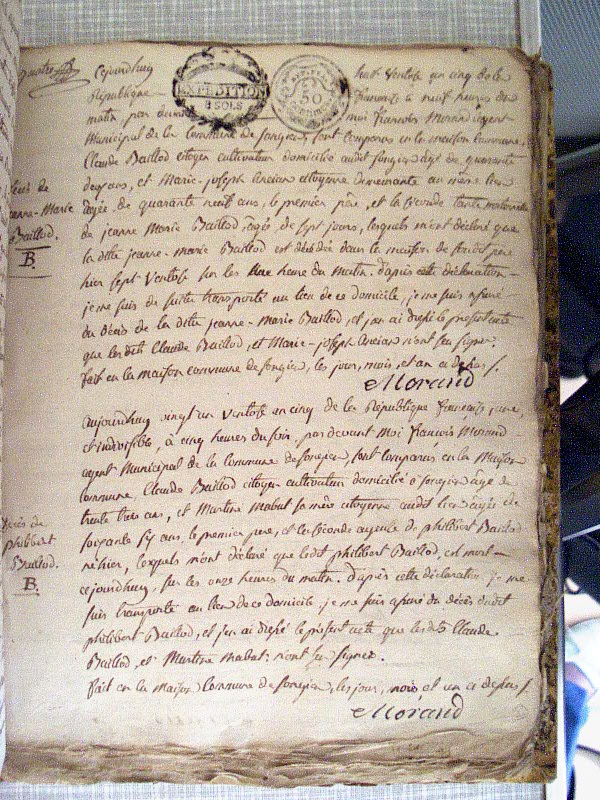 Cejourdhuy huit Ventose an cinq de la
République française à neuf heures du
matin, par devant moi François Morand agent
Municipal de la Commune de songieu, sont comparus en la maison commune,
Claude Baillod citoyen cultivateur domicilié audit songieu âgé de quarante
deux ans, et Marie-joseph Ancian citoyenne demeurante au même lieu
âgée de quarante neuf ans, le premier père, et la seconde tante maternelle
de jeanne Marie Baillod, âgée de sept jours, lesquels m'ont déclaré que
la dite jeanne-marie Baillod est décédée dans la maison de son dit père
hier sept Ventose sur les heure du matin. d'après cette déclaration
je me suis de suite transporté au lieu de ce domicile, je me suis assuré
du décès de la dite jeanne-Marie Baillod, et j'en ai dressé le présent acte
que les dits Claude Baillod, et Marie-joseph Ancian n'ont su signer.
fait en la maison commune de songieu, les jour, mois, et an ci dessus.
Morand
EXPÉDITION
8 SOLS
50
décès de
jeanne-Marie
Baillod.
B.
aujourdhuy vingt un Ventose an cinq de la République française, une,
et indivisible, à cinq heures du soir, par devant moi françois Morand
agent Municipal de la Commune de songieu, sont comparus en la Maison
Commune, Claude Baillod citoyen cultivateur domicilié à songieu âgé de
trente trois ans, et Martine Mabut sa mère citoyenne audit lieu âgée de
soixante six ans, le premier père, et la seconde ayeule de philibert Baillod
né hier, lesquels m'ont déclaré que ledit philibert Baillod, est mort
cejourdhuy, sur les onze heures du matin. d'après cette déclaration je me
suis transporté au lieu de ce domicile, je me suis assuré du décès dudit
philibert Baillod, et j'en ai dressé le présent acte que les dits Claude
Baillod, et Martine Mabut n'ont su signer.
fait en la Maison Commune de songieu, les jour, mois et an ci dessus.
Morand
décès de
philibert
Baillod.
B.